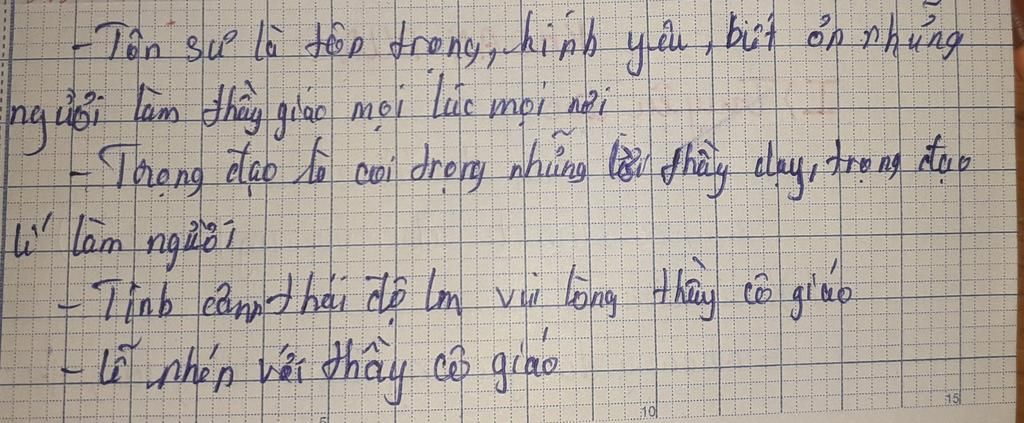 - Tôn sư là tôn trọng, kính yêu, biết ơn những
người làm thầy giáo mọi lúc mọi nơi
- Trọng đạo là coi trọng những lời thầy dạy, trọng đạo
lí làm người
- Tình cảm thái độ lm vui lòng thầy cô giáo
- lễ nhép với thầy cô giáo
10
15